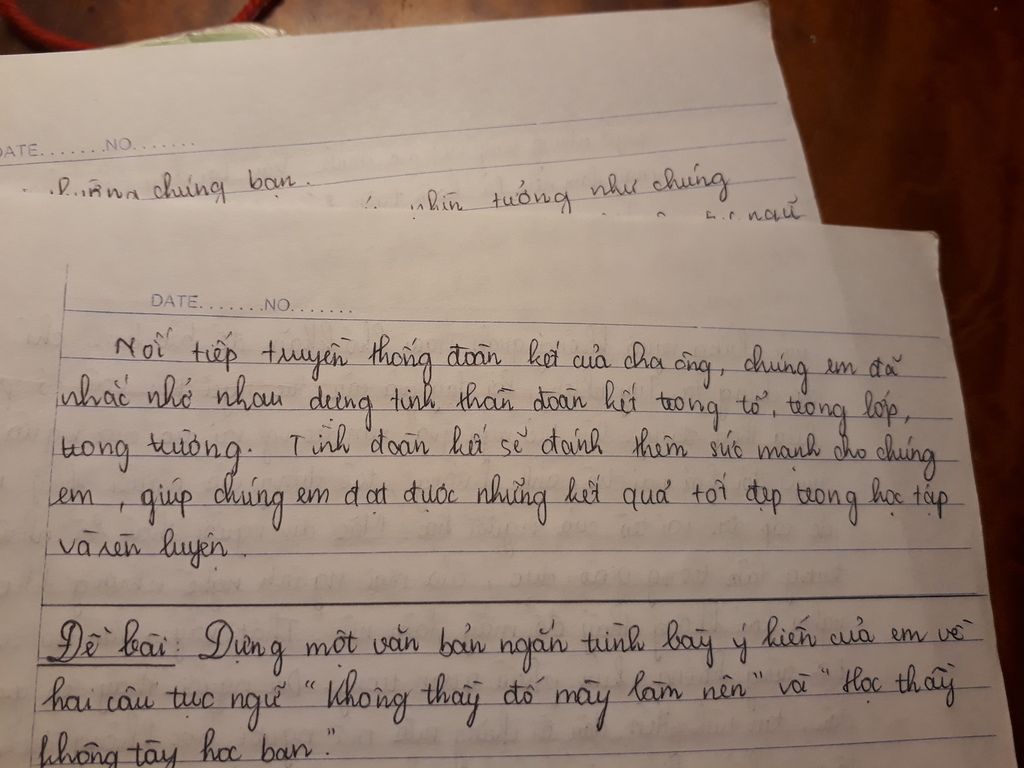 DATE.......NO.......
chúng bạn.
tưởng như chúng
ngữ
DATE.......NO.......
Nối tiếp truyền thống đoàn kết của cha ông, chúng em đã
nhắc nhở nhau dựng tinh thần đoàn kết trong tổ, trong lớp,
trong trường. Tình đoàn kết sẽ đánh thêm sức mạnh cho chúng
em, giúp chúng em đạt được những kết quả tốt đẹp trong học tập
và rèn luyện.
Đề bài: Dựng một văn bản ngắn trình bày ý kiến của em về
hai câu tục ngữ "Không thầy đố mày làm nên" và "Học thầy
không tày học bạn."